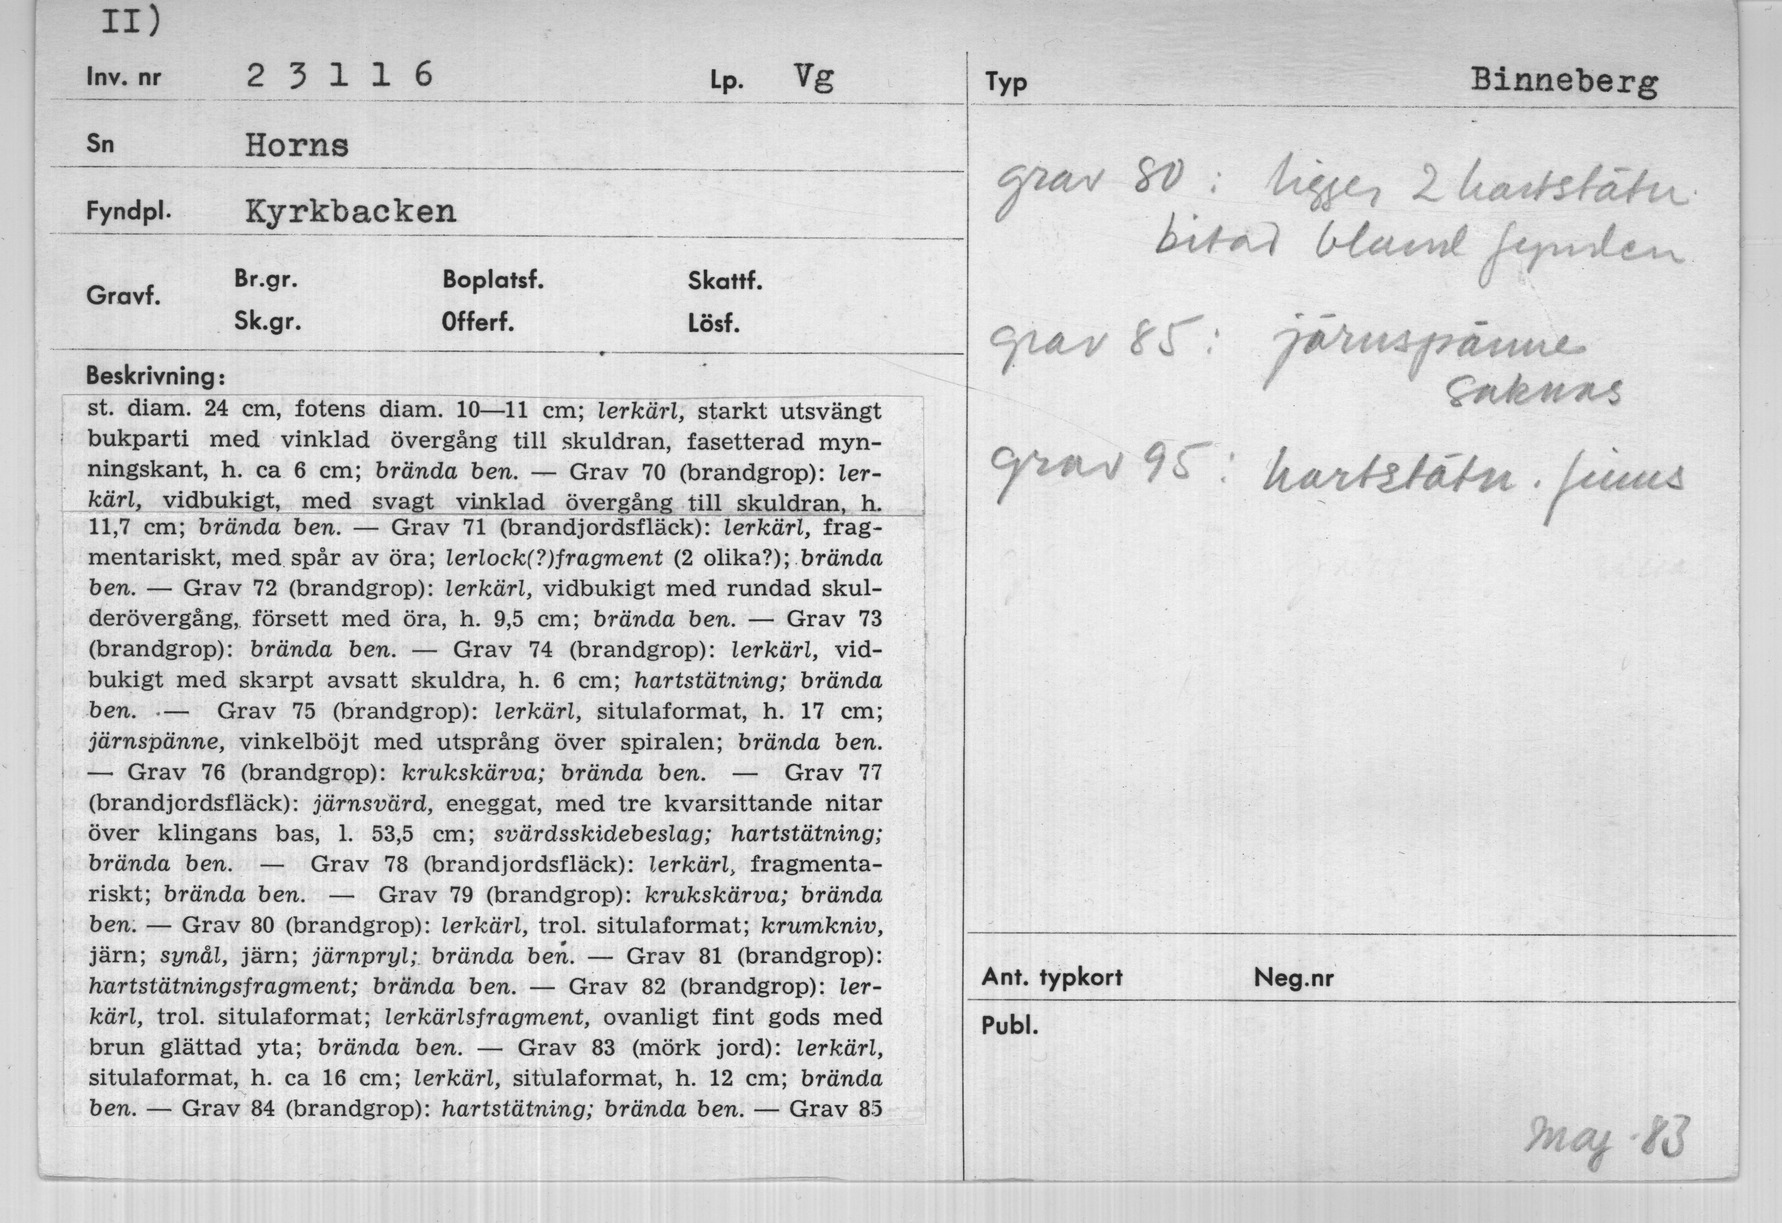 II)
Inv. nr 2 3 1 1 6 Lp. Vg
Sn Horns
Fyndpl. Kyrkbacken
Gravf. Br.gr. Boplatsf. Skattf.
Sk.gr. Offerf. Lösf.
Beskrivning:
st. diam. 24 cm, fotens diam. 10—11 cm; lerkärl, starkt utsvängt
bukparti med vinklad övergång till skuldran, fasetterad myn-
ningskant, h. ca 6 cm; brända ben. — Grav 70 (brandgrop): ler-
kärl, vidbukigt, med svagt vinklad övergång till skuldran, h.
11,7 cm; brända ben. — Grav 71 (brandjordsfläck): lerkärl, frag-
mentariskt, med spår av öra; lerlock(?)fragment (2 olika?); brända
ben. — Grav 72 (brandgrop): lerkärl, vidbukigt med rundad skul-
derövergång, försett med öra, h. 9,5 cm; brända ben. — Grav 73
(brandgrop): brända ben. — Grav 74 (brandgrop): lerkärl, vid-
bukigt med skarpt avsatt skuldra, h. 6 cm; hartstätning; brända
ben. — Grav 75 (brandgrop): lerkärl, situlaformat, h. 17 cm;
järnspänne, vinkelböjt med utsprång över spiralen; brända ben.
— Grav 76 (brandgrop): krukskärva; brända ben. — Grav 77
(brandjordsfläck): järnsvärd, eneggat, med tre kvarsittande nitar
över klingans bas, l. 53,5 cm; svärdsskidebeslag; hartstätning;
brända ben. — Grav 78 (brandjordsfläck): lerkärl, fragmenta-
riskt; brända ben. — Grav 79 (brandgrop): krukskärva; brända
ben. — Grav 80 (brandgrop): lerkärl, trol. situlaformat; krumkniv,
järn; synål, järn; järnpryl; brända ben. — Grav 81 (brandgrop):
hartstätningsfragment; brända ben. — Grav 82 (brandgrop): ler-
kärl, trol. situlaformat; lerkärlsfragment, ovanligt fint gods med
brun glättad yta; brända ben. — Grav 83 (mörk jord): lerkärl,
situlaformat, h. ca 16 cm; lerkärl, situlaformat, h. 12 cm; brända
ben. — Grav 84 (brandgrop): hartstätning; brända ben. — Grav 85
Typ Binneberg
grav 80: ligger 2 hartstätn.
bitar bland fynden
grav 85: järnspänne
saknas
grav 95: hartstätn. finns
Ant. typkort Neg.nr
Publ.
Maj -83